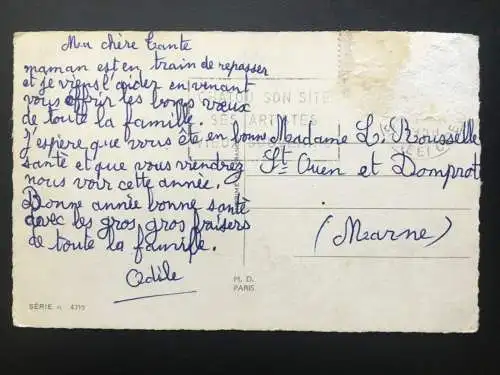 Ma chère Tante
maman est en train de repasser
et je viens l'aider en venant
vous offrir les bons vœux
de toute la famille.
J'espère que vous ête en bonne
santé et que vous viendrez
nous voir cette année.
Bonne année bonne santé
avec les gros gros baisers
de toute la famille.
Odile
SON SITE
SES ARTISTES
Madame L. Rousselle
St Ouen et Domprot
(Marne)
M. D.
PARIS
SÉRIE n. 4719